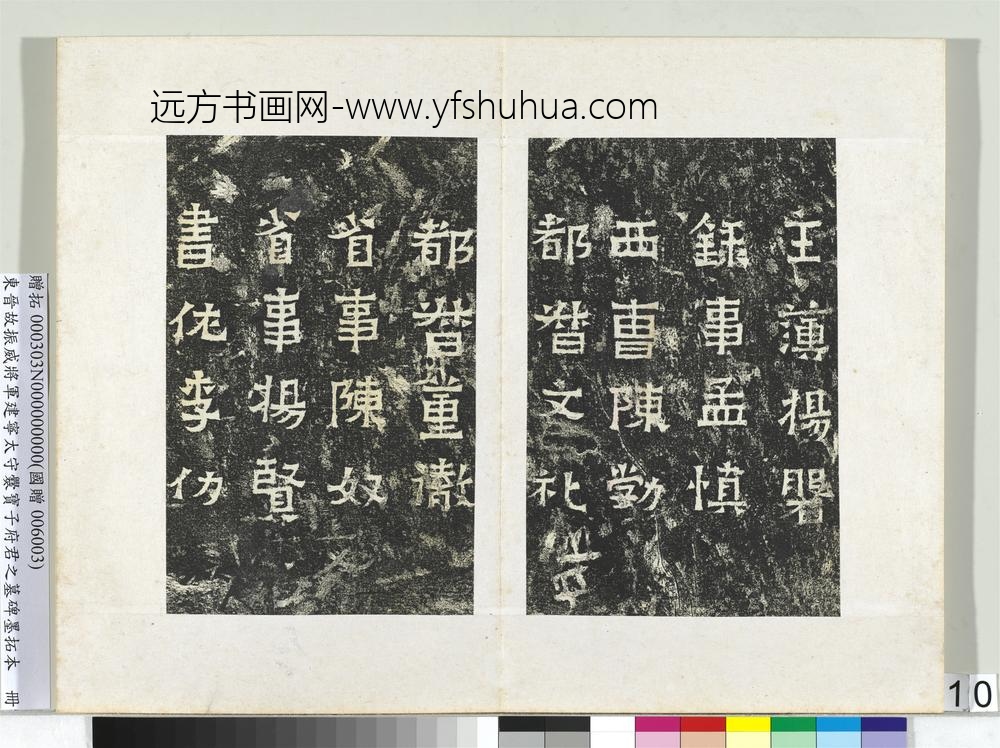 远方书画网-www.yfshuhua.com
主薄揚磐
錄事孟慎
西曹陳勃
都督文礼
都督董徹
省事陳奴
省事揚賢
書佐李仂
贈拓 000303N000000000(國贈 006003)
東晉故振威將軍建寧太守爨寶子府君之墓碑墨拓本 冊
10